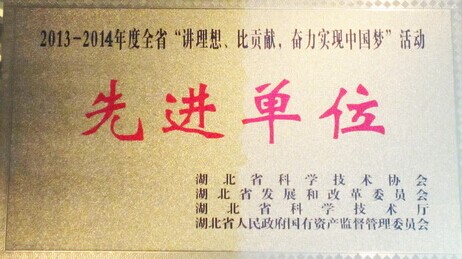 2013-2014年度全省“讲理想、比贡献，奋力实现中国梦”活动
先进单位
湖北省科学技术协会
湖北省发展和改革委员会
湖北省科学技术厅
湖北省人民政府国有资产监督管理委员会